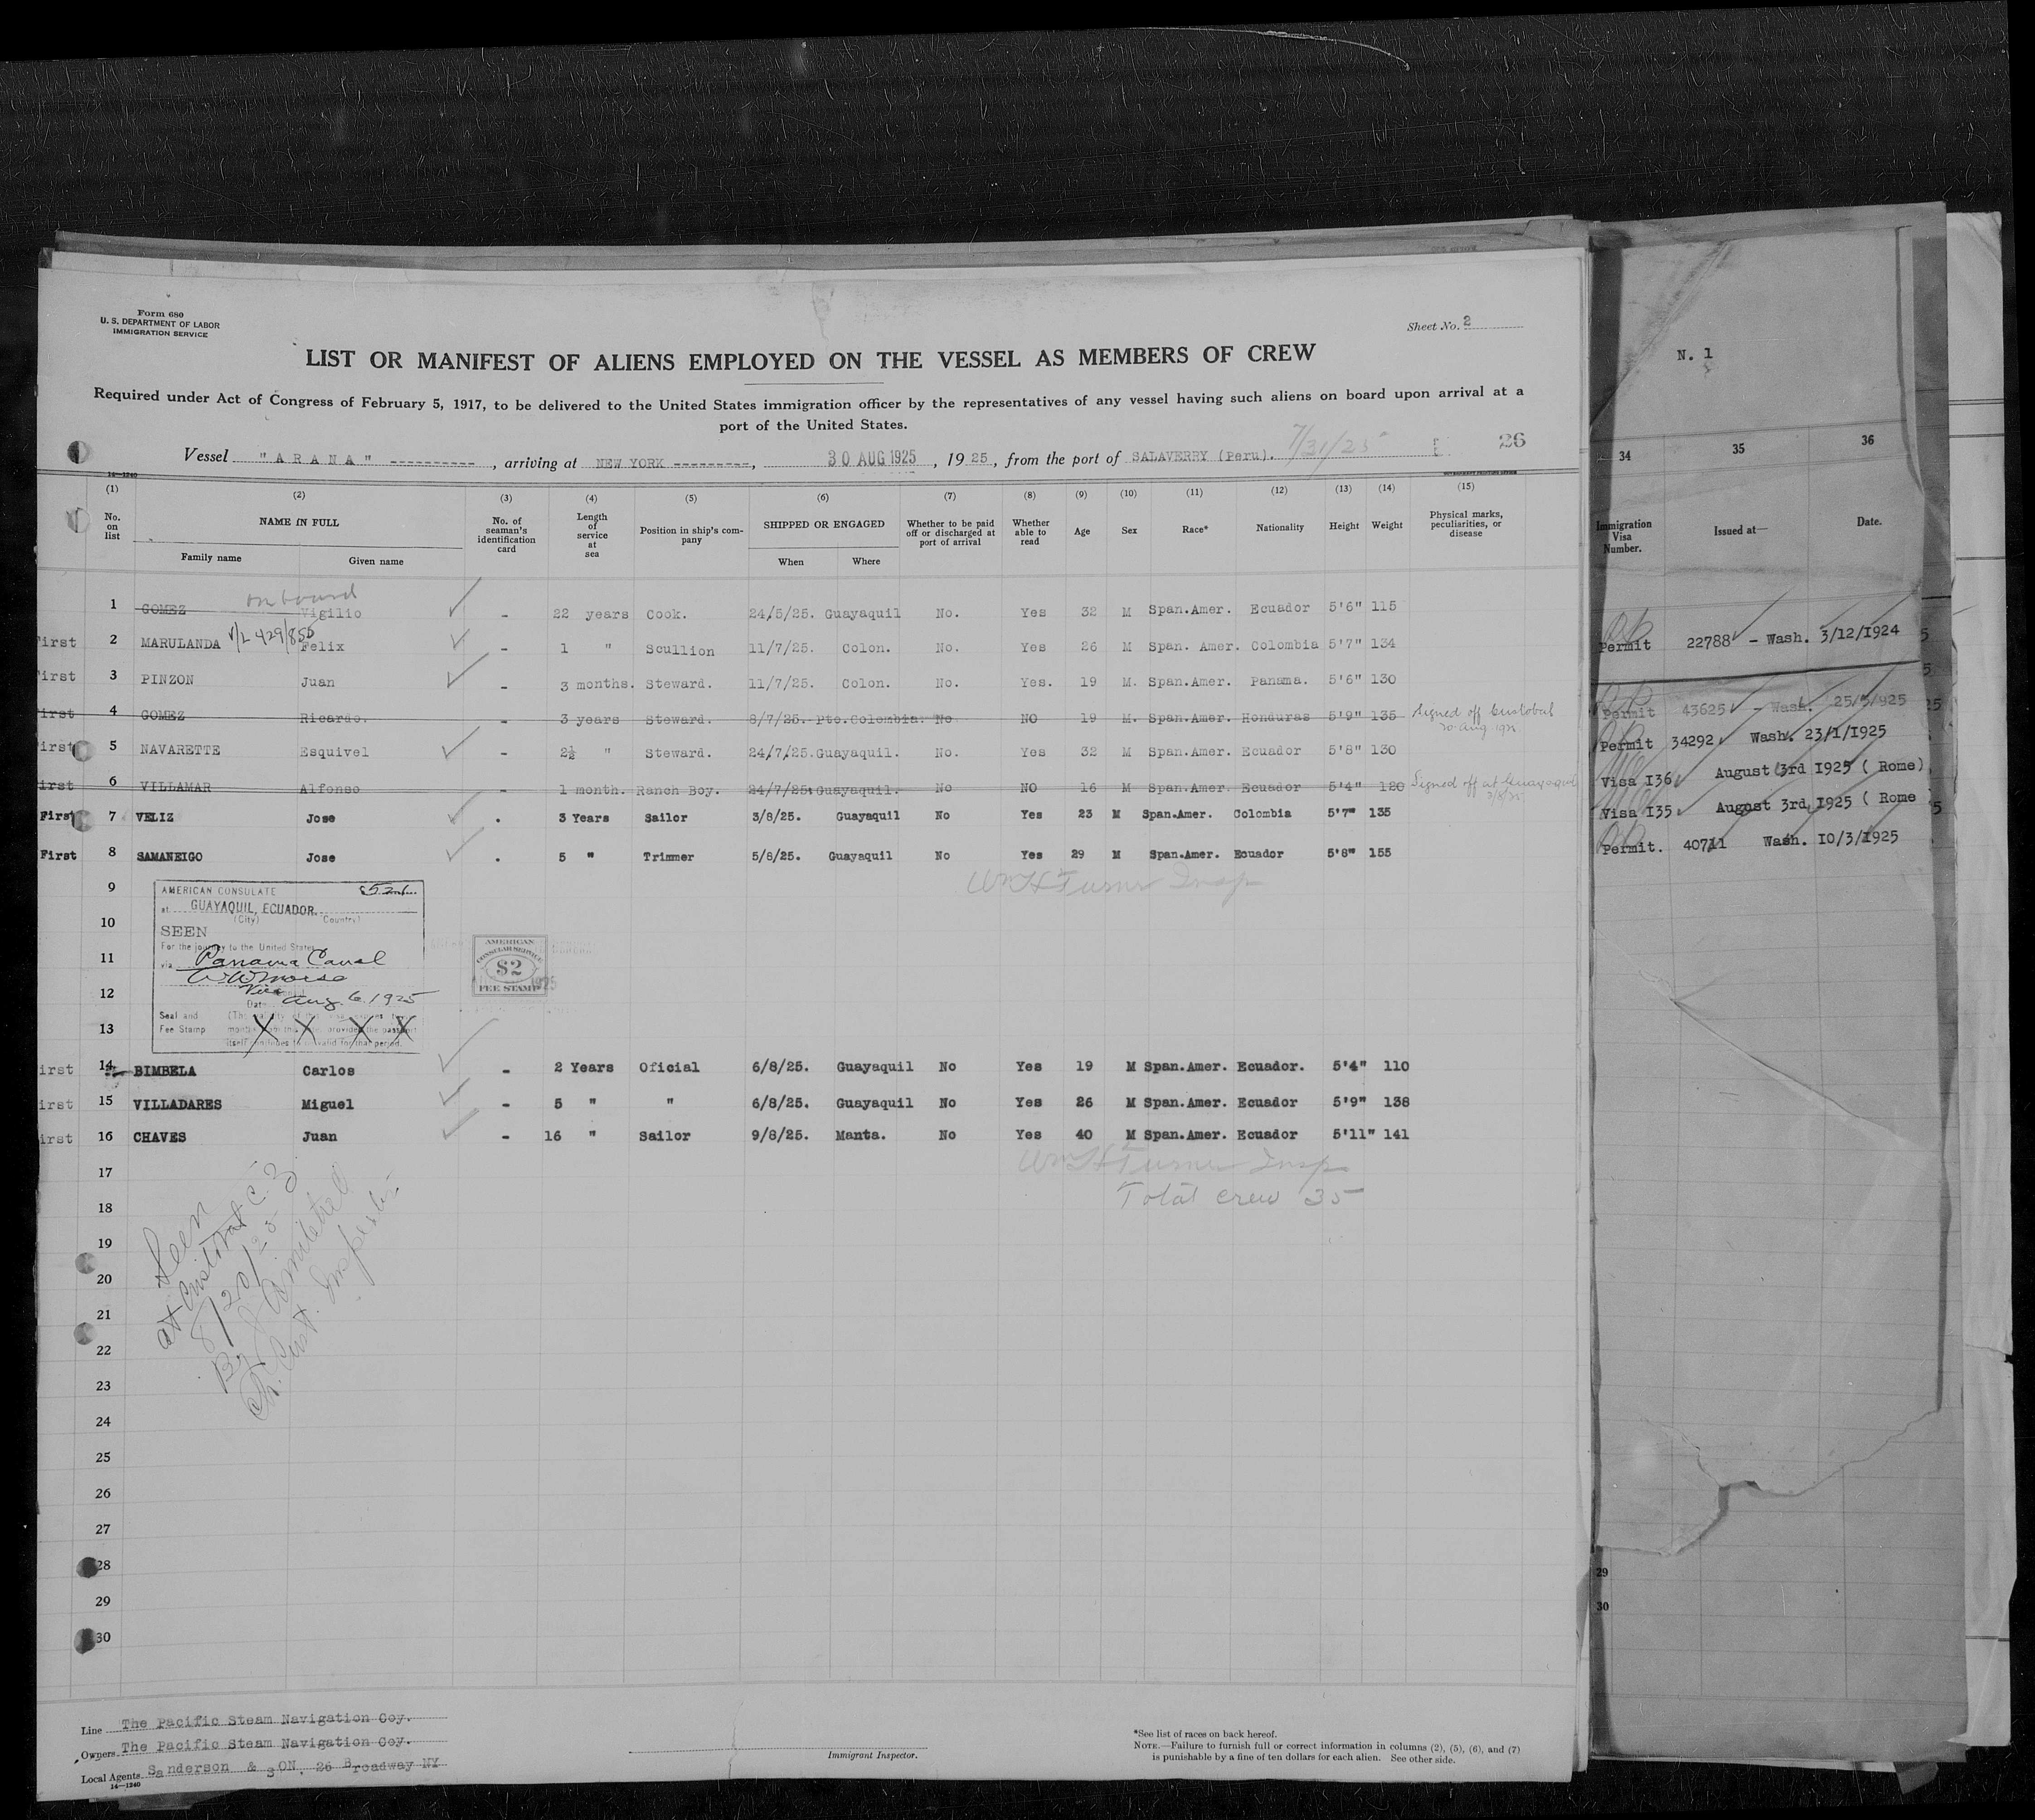 Form 680
U. S. DEPARTMENT OF LABOR
IMMIGRATION SERVICE
Sheet No. 2
LIST OR MANIFEST OF ALIENS EMPLOYED ON THE VESSEL AS MEMBERS OF CREW
Required under Act of Congress of February 5, 1917, to be delivered to the United States immigration officer by the representatives of any vessel having such aliens on board upon arrival at a
port of the United States.
7/31/25
26
Vessel "ARANA" ----------, arriving at NEW YORK ---------, 30 AUG 1925, 1925, from the port of SALAVERRY (Peru).
14—1240
(1) (2) (3) (4) (5) (6) (7) (8) (9) (10) (11) (12) (13) (14) (15)
No. on list NAME IN FULL No. of seaman's identification card Length of service at sea Position in ship's company SHIPPED OR ENGAGED Whether to be paid off or discharged at port of arrival Whether able to read Age Sex Race* Nationality Height Weight Physical marks, peculiarities, or disease
Family name Given name When Where
on board
1 GOMEZ Vigilio - 22 years Cook. 24/5/25. Guayaquil No. Yes 32 M Span.Amer. Ecuador 5'6" 115
irst 2 MARULANDA V/L 429/855 Felix - 1 " Scullion 11/7/25. Colon. No. Yes 26 M Span. Amer. Colombia 5'7" 134
irst 3 PINZON Juan - 3 months. Steward. 11/7/25. Colon. No. Yes. 19 M. Span.Amer. Panama. 5'6" 130
irst 4 GOMEZ Ricardo. - 3 years Steward. 8/7/25. Pto.Colombia. No NO 19 M. Span.Amer. Honduras 5'9" 135 Signed off Cristobal
20 Aug 1925
irst 5 NAVARETTE Esquivel - 2½ " Steward. 24/7/25.Guayaquil. No. Yes 32 M Span.Amer. Ecuador 5'8" 130
irst 6 VILLAMAR Alfonso - 1 month. Ranch Boy. 24/7/25.Guayaquil. No NO 16 M Span.Amer. Ecuador 5'4" 120 Signed off at Guayaquil
3/8/25
First 7 VELIZ Jose . 3 Years Sailor 3/8/25. Guayaquil No Yes 23 M Span.Amer. Colombia 5'7" 135
First 8 SAMANEIGO Jose . 5 " Trimmer 5/8/25. Guayaquil No Yes 29 M Span.Amer. Ecuador 5'8" 155
Wm H Turner Insp
9
10
11
12
13
AMERICAN CONSULATE
at GUAYAQUIL, ECUADOR.
(City) (Country)
SEEN
For the journey to the United States
via Panama Canal
W W Morse
Vice
Date Aug. 6, 1925
Seal and
Fee Stamp
AMERICAN
CONSULAR SERVICE
$2
FEE STAMP
1925
irst 14 BIMBELA Carlos - 2 Years Oficial 6/8/25. Guayaquil No Yes 19 M Span.Amer. Ecuador. 5'4" 110
irst 15 VILLADARES Miguel - 5 " " 6/8/25. Guayaquil No Yes 26 M Span.Amer. Ecuador 5'9" 138
irst 16 CHAVES Juan - 16 " Sailor 9/8/25. Manta. No Yes 40 M Span.Amer. Ecuador 5'11" 141
Wm H Turner Insp
Total crew 35
17
18
19
20
21
22
23
24
25
26
27
28
29
30
Seen
at Cristobal C Z
8/20/25
Inspector
Line The Pacific Steam Navigation Coy.
Owners The Pacific Steam Navigation Coy.
Local Agents Sanderson & sON. 26 Broadway NY
14—1240
Immigrant Inspector.
*See list of races on back hereof.
NOTE.—Failure to furnish full or correct information in columns (2), (5), (6), and (7)
is punishable by a fine of ten dollars for each alien. See other side.
N. 1
34 35 36
Immigration Visa Number. Issued at— Date.
Permit 22788 - Wash. 3/12/1924
Permit 43625 - Wash. 25/5/925
Permit 34292 Wash. 23/1/1925
Visa I36 August 3rd 1925 ( Rome)
Visa I35 August 3rd 1925 ( Rome
Permit. 40711 Wash. 10/3/1925
29
30